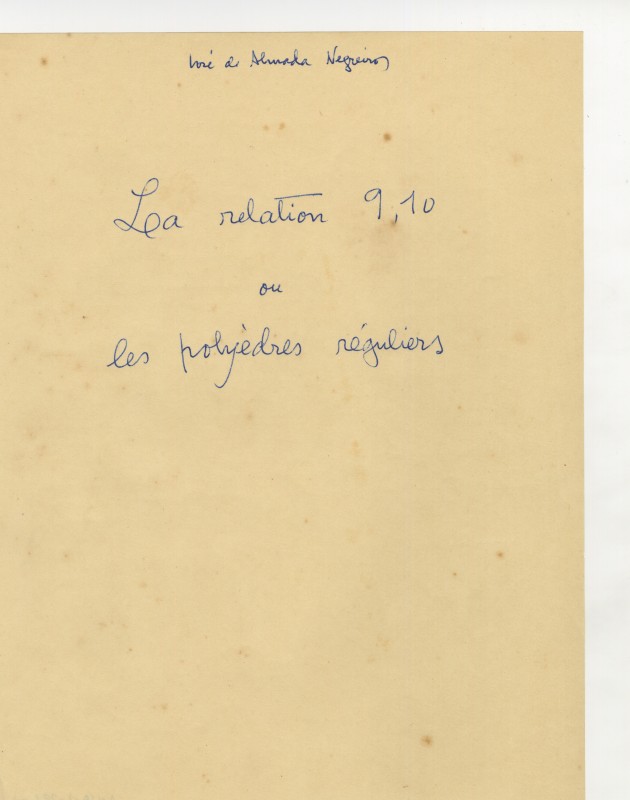 José de Almada Negreiros
La relation 9,10
ou
les polyèdres réguliers